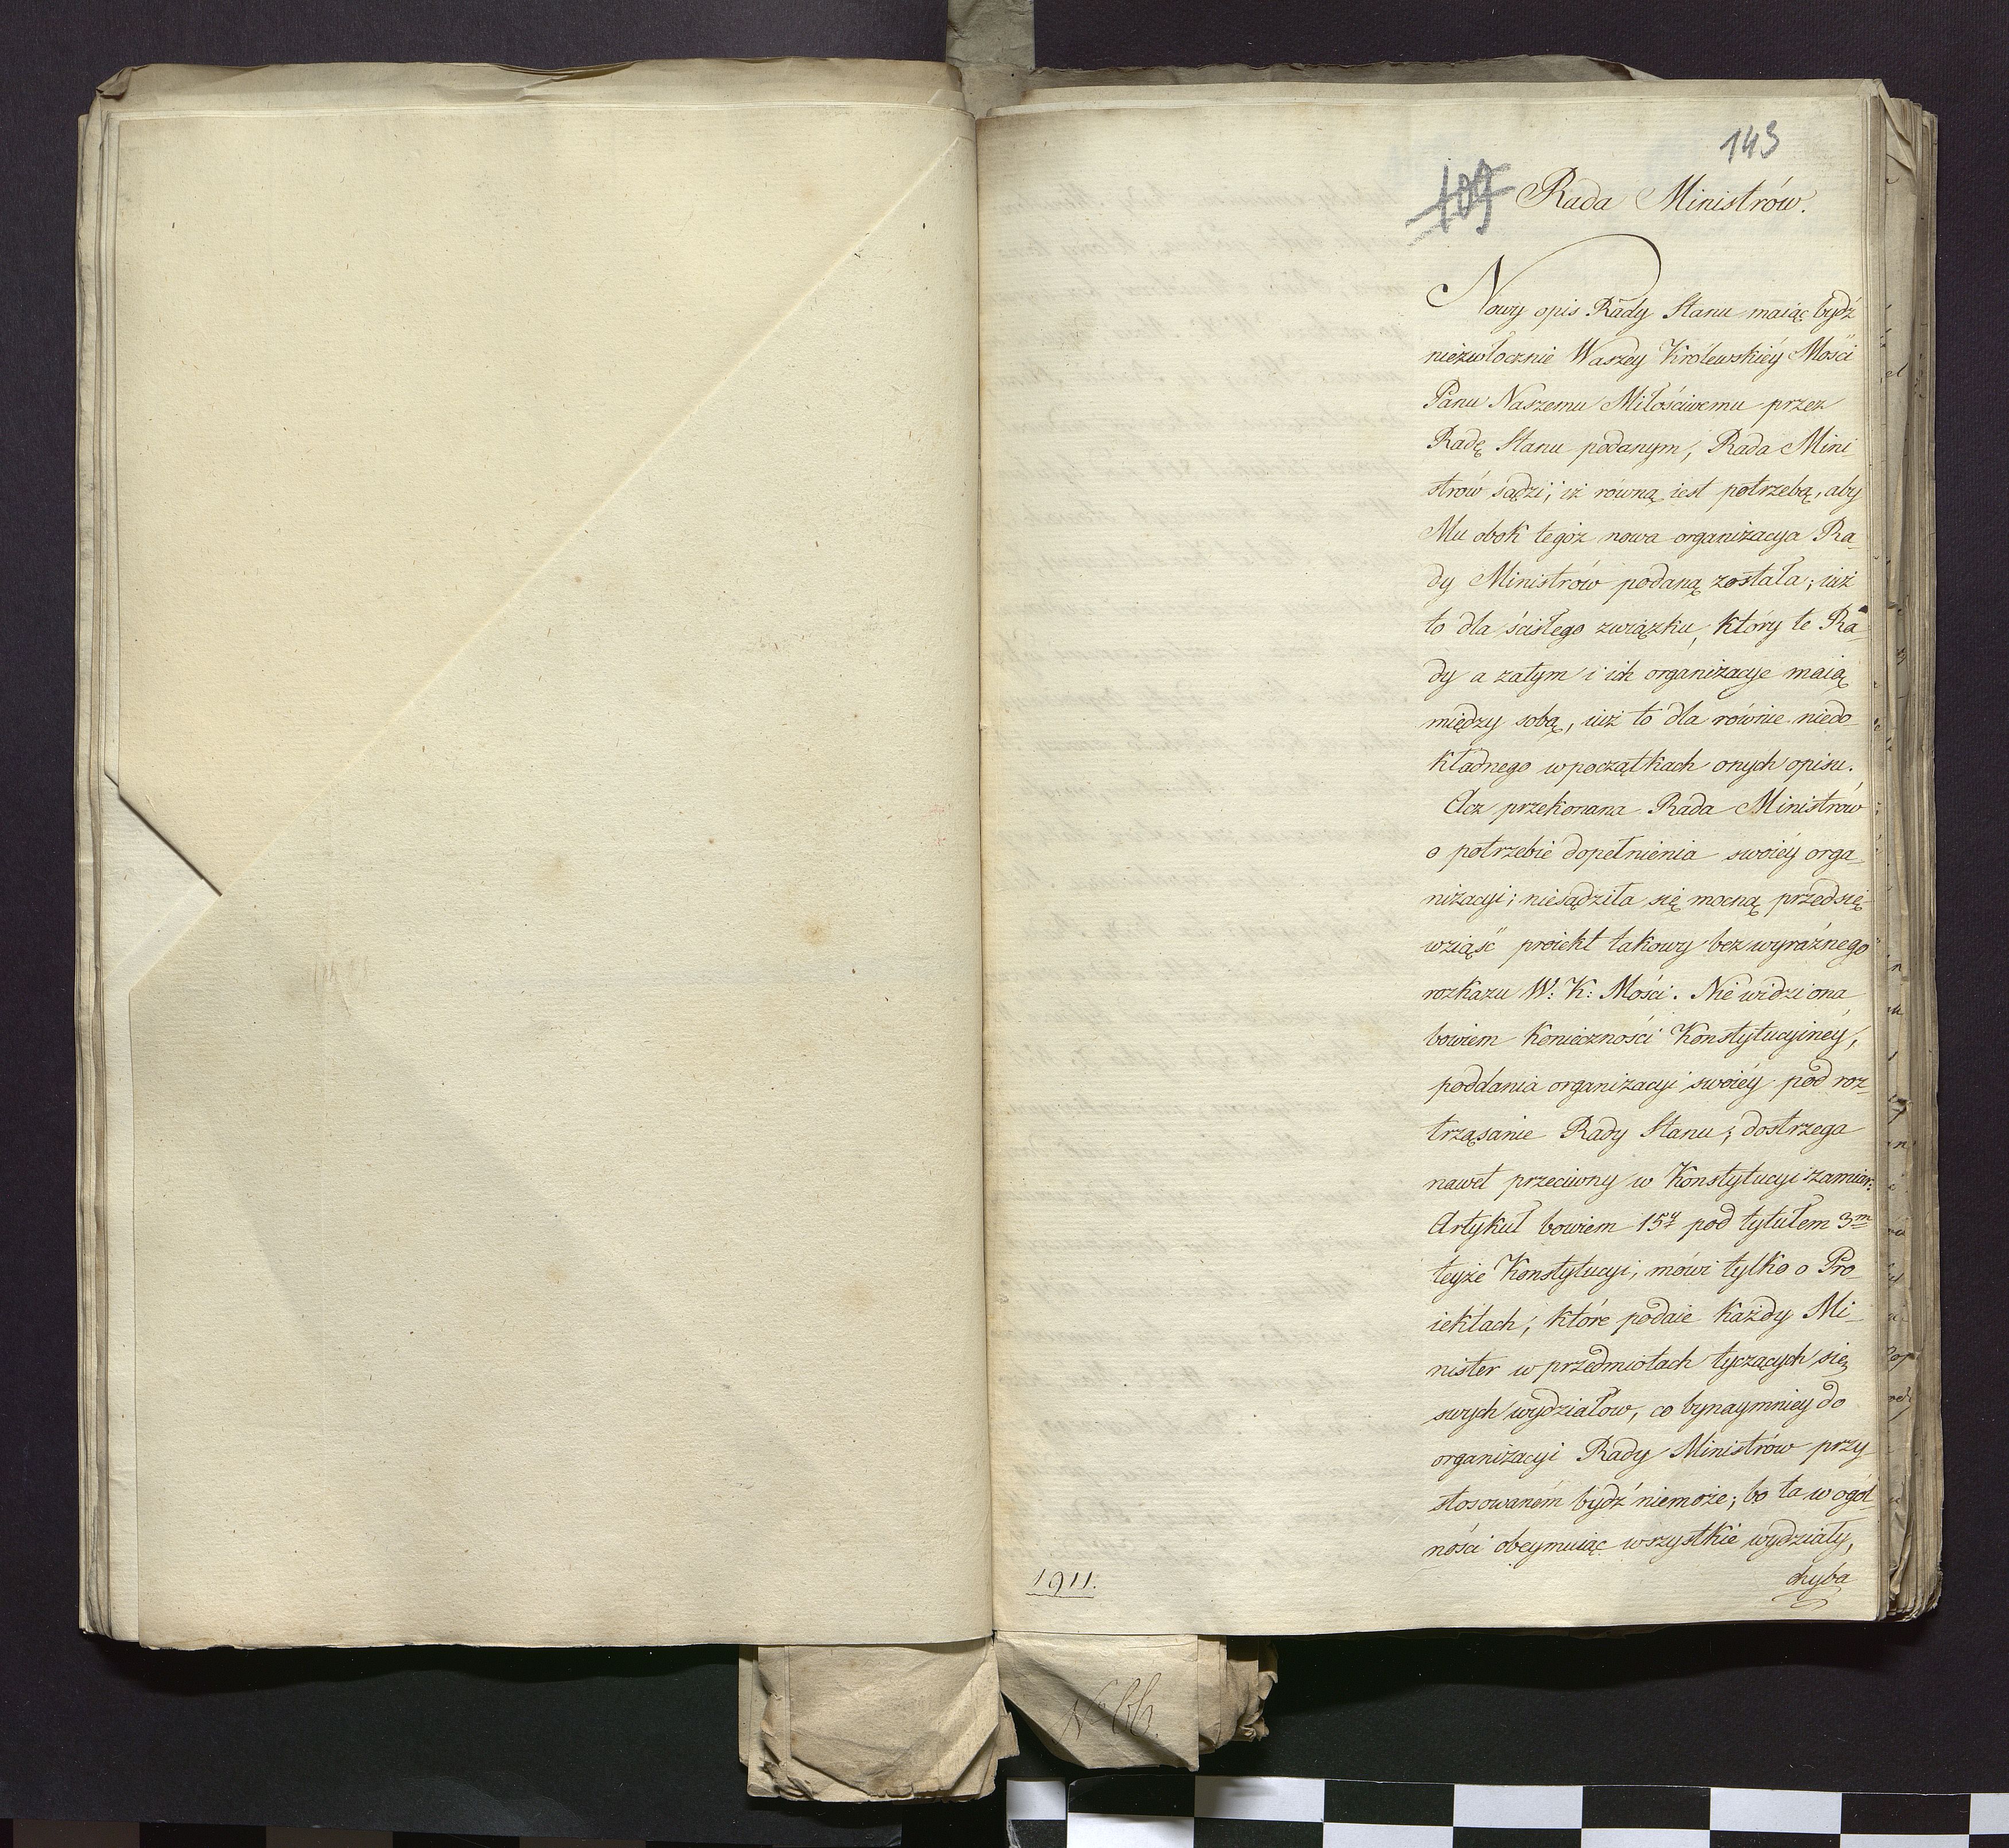 143
109 Rada Ministrów.
Nowy opis Rady Stanu maiąc bydź
niezwłocznie Waszey Królewskiéy Mości
Panu Naszemu Miłościwemu przez
Radę Stanu podanym, Rada Mini
strów sądzi, iż równą iest potrzebą, aby
Mu obok tegoż nowa organizacya Ra-
dy Ministrów podaną została; iuż
to dla ścisłego związku, który te Ra-
dy a zatym i ich organizacye maią
między sobą, iuż to dla równie niedo-
kładnego w początkach onych opisu.
Acz przekonana Rada Ministrów
o potrzebie dopełnienia swoiéy orga-
nizacyi; niesądziła się mocną przedsię-
wziąść proiekt takowy bez wyraźnego
rozkazu W: K: Mości. Nie widzi ona
bowiem konieczności Konstytucyinéy,
poddania organizacyi swoiéy pod roz-
trząsanie Rady Stanu; dostrzega
nawet przeciwny w Konstytucyi zamiar:
Artykuł bowiem 15y pod tytułem 3m
teyże Konstytucyi, mówi tylko o Pro-
iektach, które podaie każdy Mi-
nister w przedmiotach tyczących się
swych wydziałów, co bynaymniey do
organizacyi Rady Ministrów przy-
stosowaném bydź niemoże; bo ta w ogól-
ności obeymuiąc wszystkie wydziały,
chyba
1911.